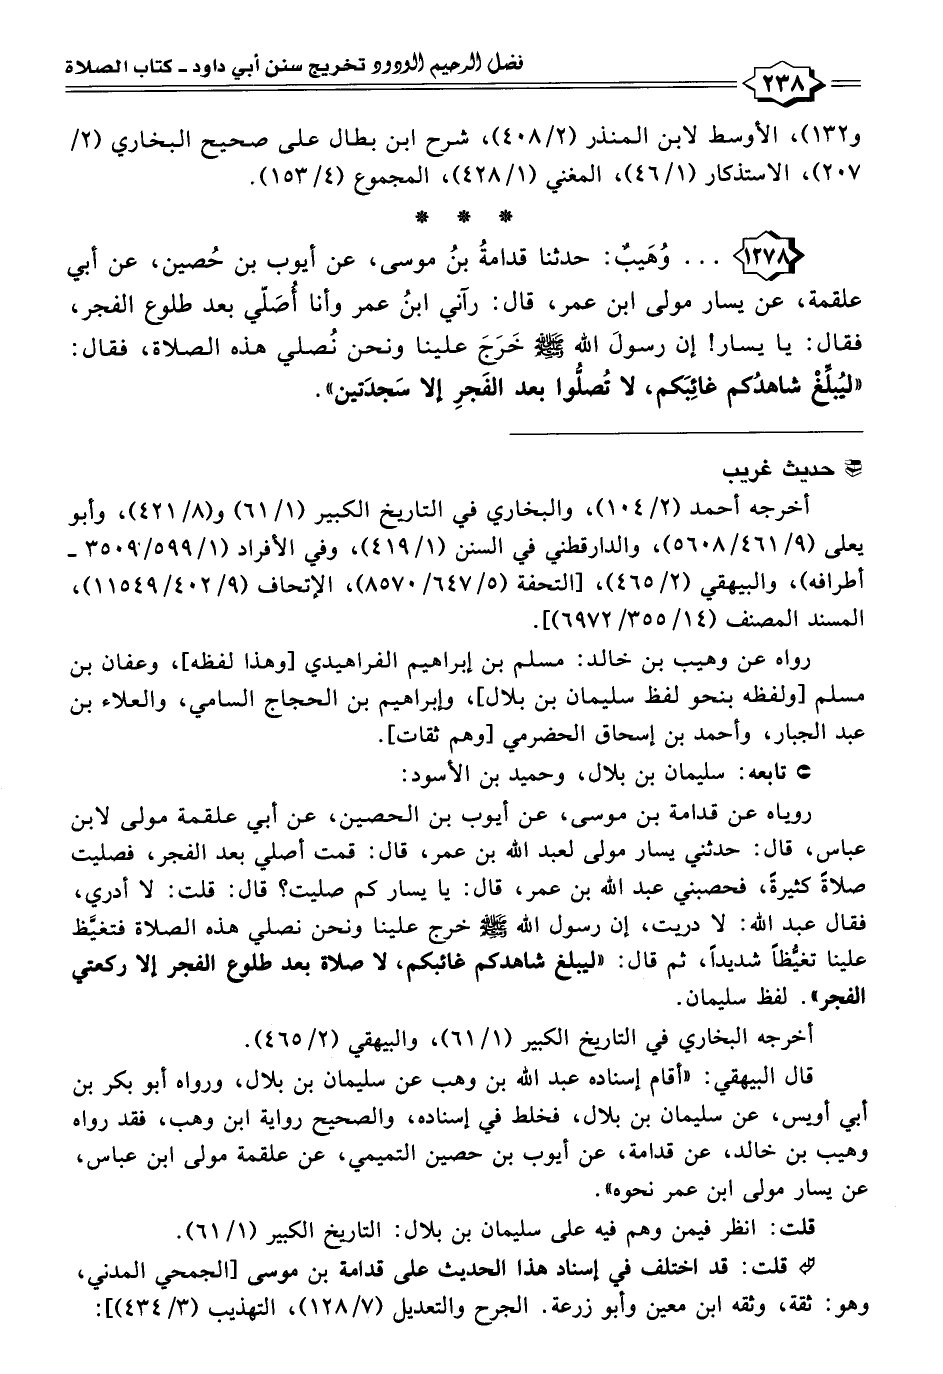 فضل الرحيم الودود تخريج سنن أبي داود - كتاب الصلاة
٢٣٨
و١٣٢)، الأوسط لابن المنذر (٤٠٨/٢)، شرح ابن بطال على صحيح البخاري (٢/
٢٠٧)، الاستذكار (٤٦/١)، المغني (٤٢٨/١)، المجموع (١٥٣/٤).
* * *
١٢٧٨ ... وُهَيبٌ: حدثنا قدامةُ بنُ موسى، عن أيوب بن حُصين، عن أبي
علقمة، عن يسار مولى ابن عمر، قال: رآني ابنُ عمر وأنا أُصَلّي بعد طلوع الفجر،
فقال: يا يسار! إن رسولَ الله ﷺ خَرَجَ علينا ونحن نُصلي هذه الصلاة، فقال:
«ليُبلِّغْ شاهدُكم غائِبَكم، لا تُصلُّوا بعد الفَجرِ إلا سَجدَتين».
حديث غريب
أخرجه أحمد (١٠٤/٢)، والبخاري في التاريخ الكبير (٦١/١) و(٤٢١/٨)، وأبو
يعلى (٥٦٠٨/٤٦١/٩)، والدارقطني في السنن (٤١٩/١)، وفي الأفراد (٣٥٠٩/٥٩٩/١ -
أطرافه)، والبيهقي (٤٦٥/٢)، [التحفة (٨٥٧٠/٦٤٧/٥)، الإتحاف (١١٥٤٩/٤٠٢/٩)،
المسند المصنف (٦٩٧٢/٣٥٥/١٤)].
رواه عن وهيب بن خالد: مسلم بن إبراهيم الفراهيدي [وهذا لفظه]، وعفان بن
مسلم [ولفظه بنحو لفظ سليمان بن بلال]، وإبراهيم بن الحجاج السامي، والعلاء بن
عبد الجبار، وأحمد بن إسحاق الحضرمي [وهم ثقات].
تابعه: سليمان بن بلال، وحميد بن الأسود:
روياه عن قدامة بن موسى، عن أيوب بن الحصين، عن أبي علقمة مولى لابن
عباس، قال: حدثني يسار مولى لعبد الله بن عمر، قال: قمت أصلي بعد الفجر، فصليت
صلاةً كثيرةً، فحصبني عبد الله بن عمر، قال: يا يسار كم صليت؟ قال: قلت: لا أدري،
فقال عبد الله: لا دريت، إن رسول الله ﷺ خرج علينا ونحن نصلي هذه الصلاة فتغيَّظ
علينا تغيُّظاً شديداً، ثم قال: «ليبلغ شاهدكم غائبكم، لا صلاة بعد طلوع الفجر إلا ركعتي
الفجر». لفظ سليمان.
أخرجه البخاري في التاريخ الكبير (٦١/١)، والبيهقي (٤٦٥/٢).
قال البيهقي: «أقام إسناده عبد الله بن وهب عن سليمان بن بلال، ورواه أبو بكر بن
أبي أويس، عن سليمان بن بلال، فخلط في إسناده، والصحيح رواية ابن وهب، فقد رواه
وهيب بن خالد، عن قدامة، عن أيوب بن حصين التميمي، عن علقمة مولى ابن عباس،
عن يسار مولى ابن عمر نحوه».
قلت: انظر فيمن وهم فيه على سليمان بن بلال: التاريخ الكبير (٦١/١).
قلت: قد اختلف في إسناد هذا الحديث على قدامة بن موسى [الجمحي المدني،
وهو: ثقة، وثقه ابن معين وأبو زرعة. الجرح والتعديل (١٢٨/٧)، التهذيب (٤٣٤/٣)]: